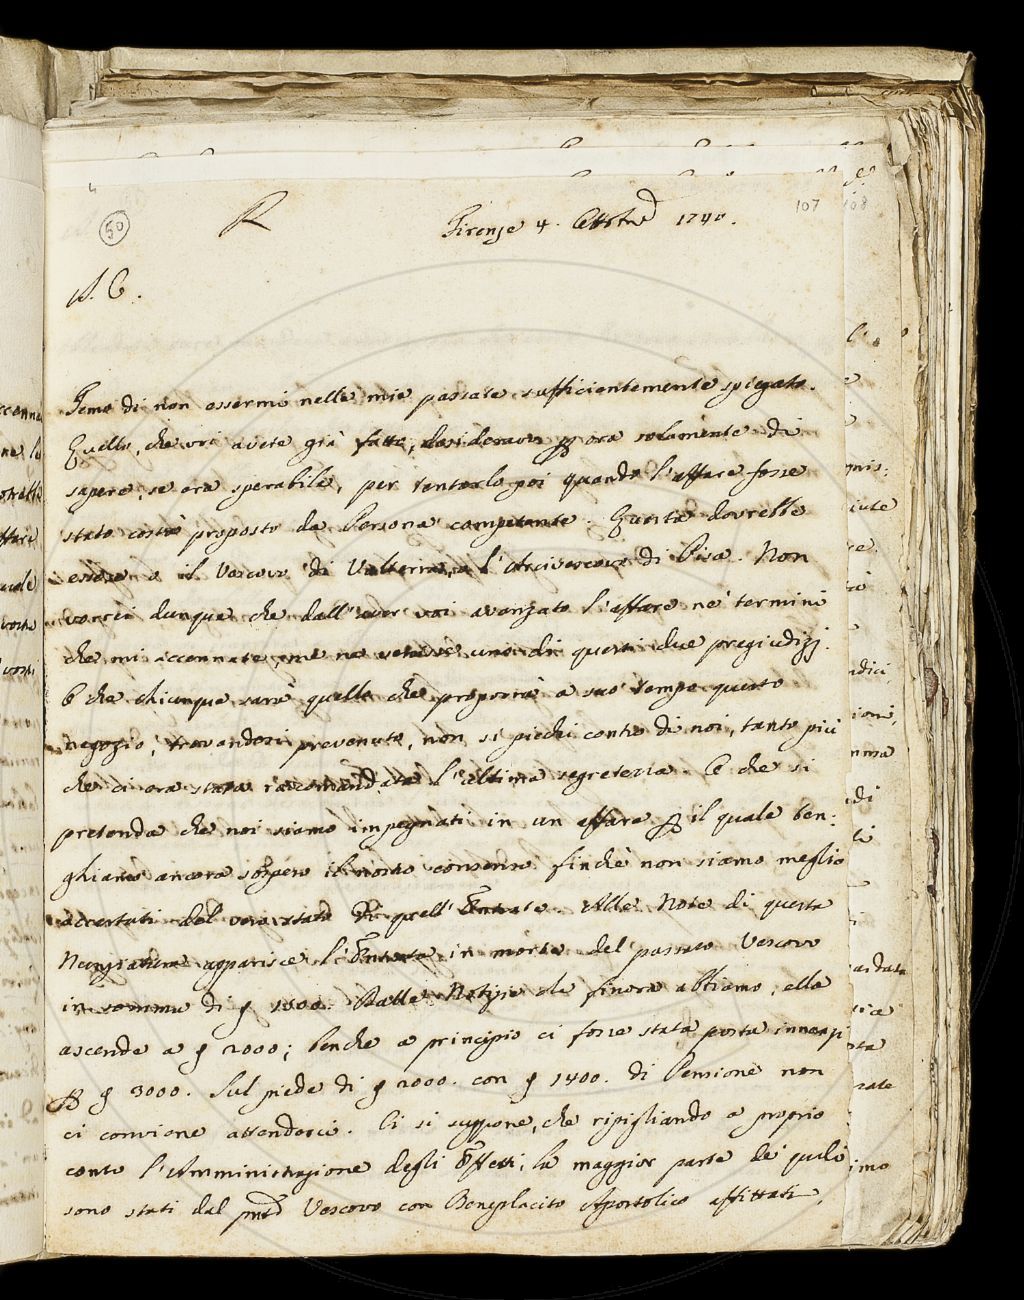 50
R
Firenze 4. Ottbre 1740.
107
108
A. C.
Temo di non essermi nelle mie passate sufficientemente spiegato.
Quello, che voi avete già fatto, desideravo p ora solamente di
sapere, se era sperabile, per tentarlo poi quando l'affare fosse
stato costì proposto da Persona competente. Questa dovrebbe
essere o il Vescovo di Volterra, o l'Arcivescovo di Pisa. Non
vorrei dunque che dall'aver voi avanzato l'affare ne' termini
che mi accennate, me ne venisse uno di questi due pregiudizj.
O che chiunque sarà quello che proporrà a suo tempo questo
negozio, trovandosi prevenuto, non si picchi contro di noi, tanto più
che ci era stata raccomandata l'ultima segretezza. O che si
pretenda che noi siamo impegnati in un affare p il quale ten:
ghiamo ancora sospeso il nostro consenso finchè non siamo meglio
accertati del vero stato di quell'Entrate. Alle Note di questa
Nunziatura apparisce l'Entrata in morte del passato Vescovo
in somma di 1500. Dalle Notizie che finora abbiamo, ella
ascende a 2000; benche a principio ci fosse stata posta innanzi
p 3000. Sul piede di 2000. con 1400. di Pensione non
ci conviene attenderci. Ci si suppone, che ripigliando a proprio
conto l'Amministrazione degli Effetti, la maggior parte de' quali
sono stati dal pnte Vescovo con Beneplacito Apostolico affittati,